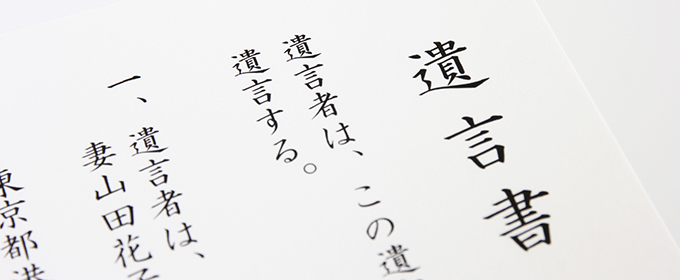 遺言書
遺言者は、この遺
遺言する。
一、遺言者は、
妻山田花子
東京都港